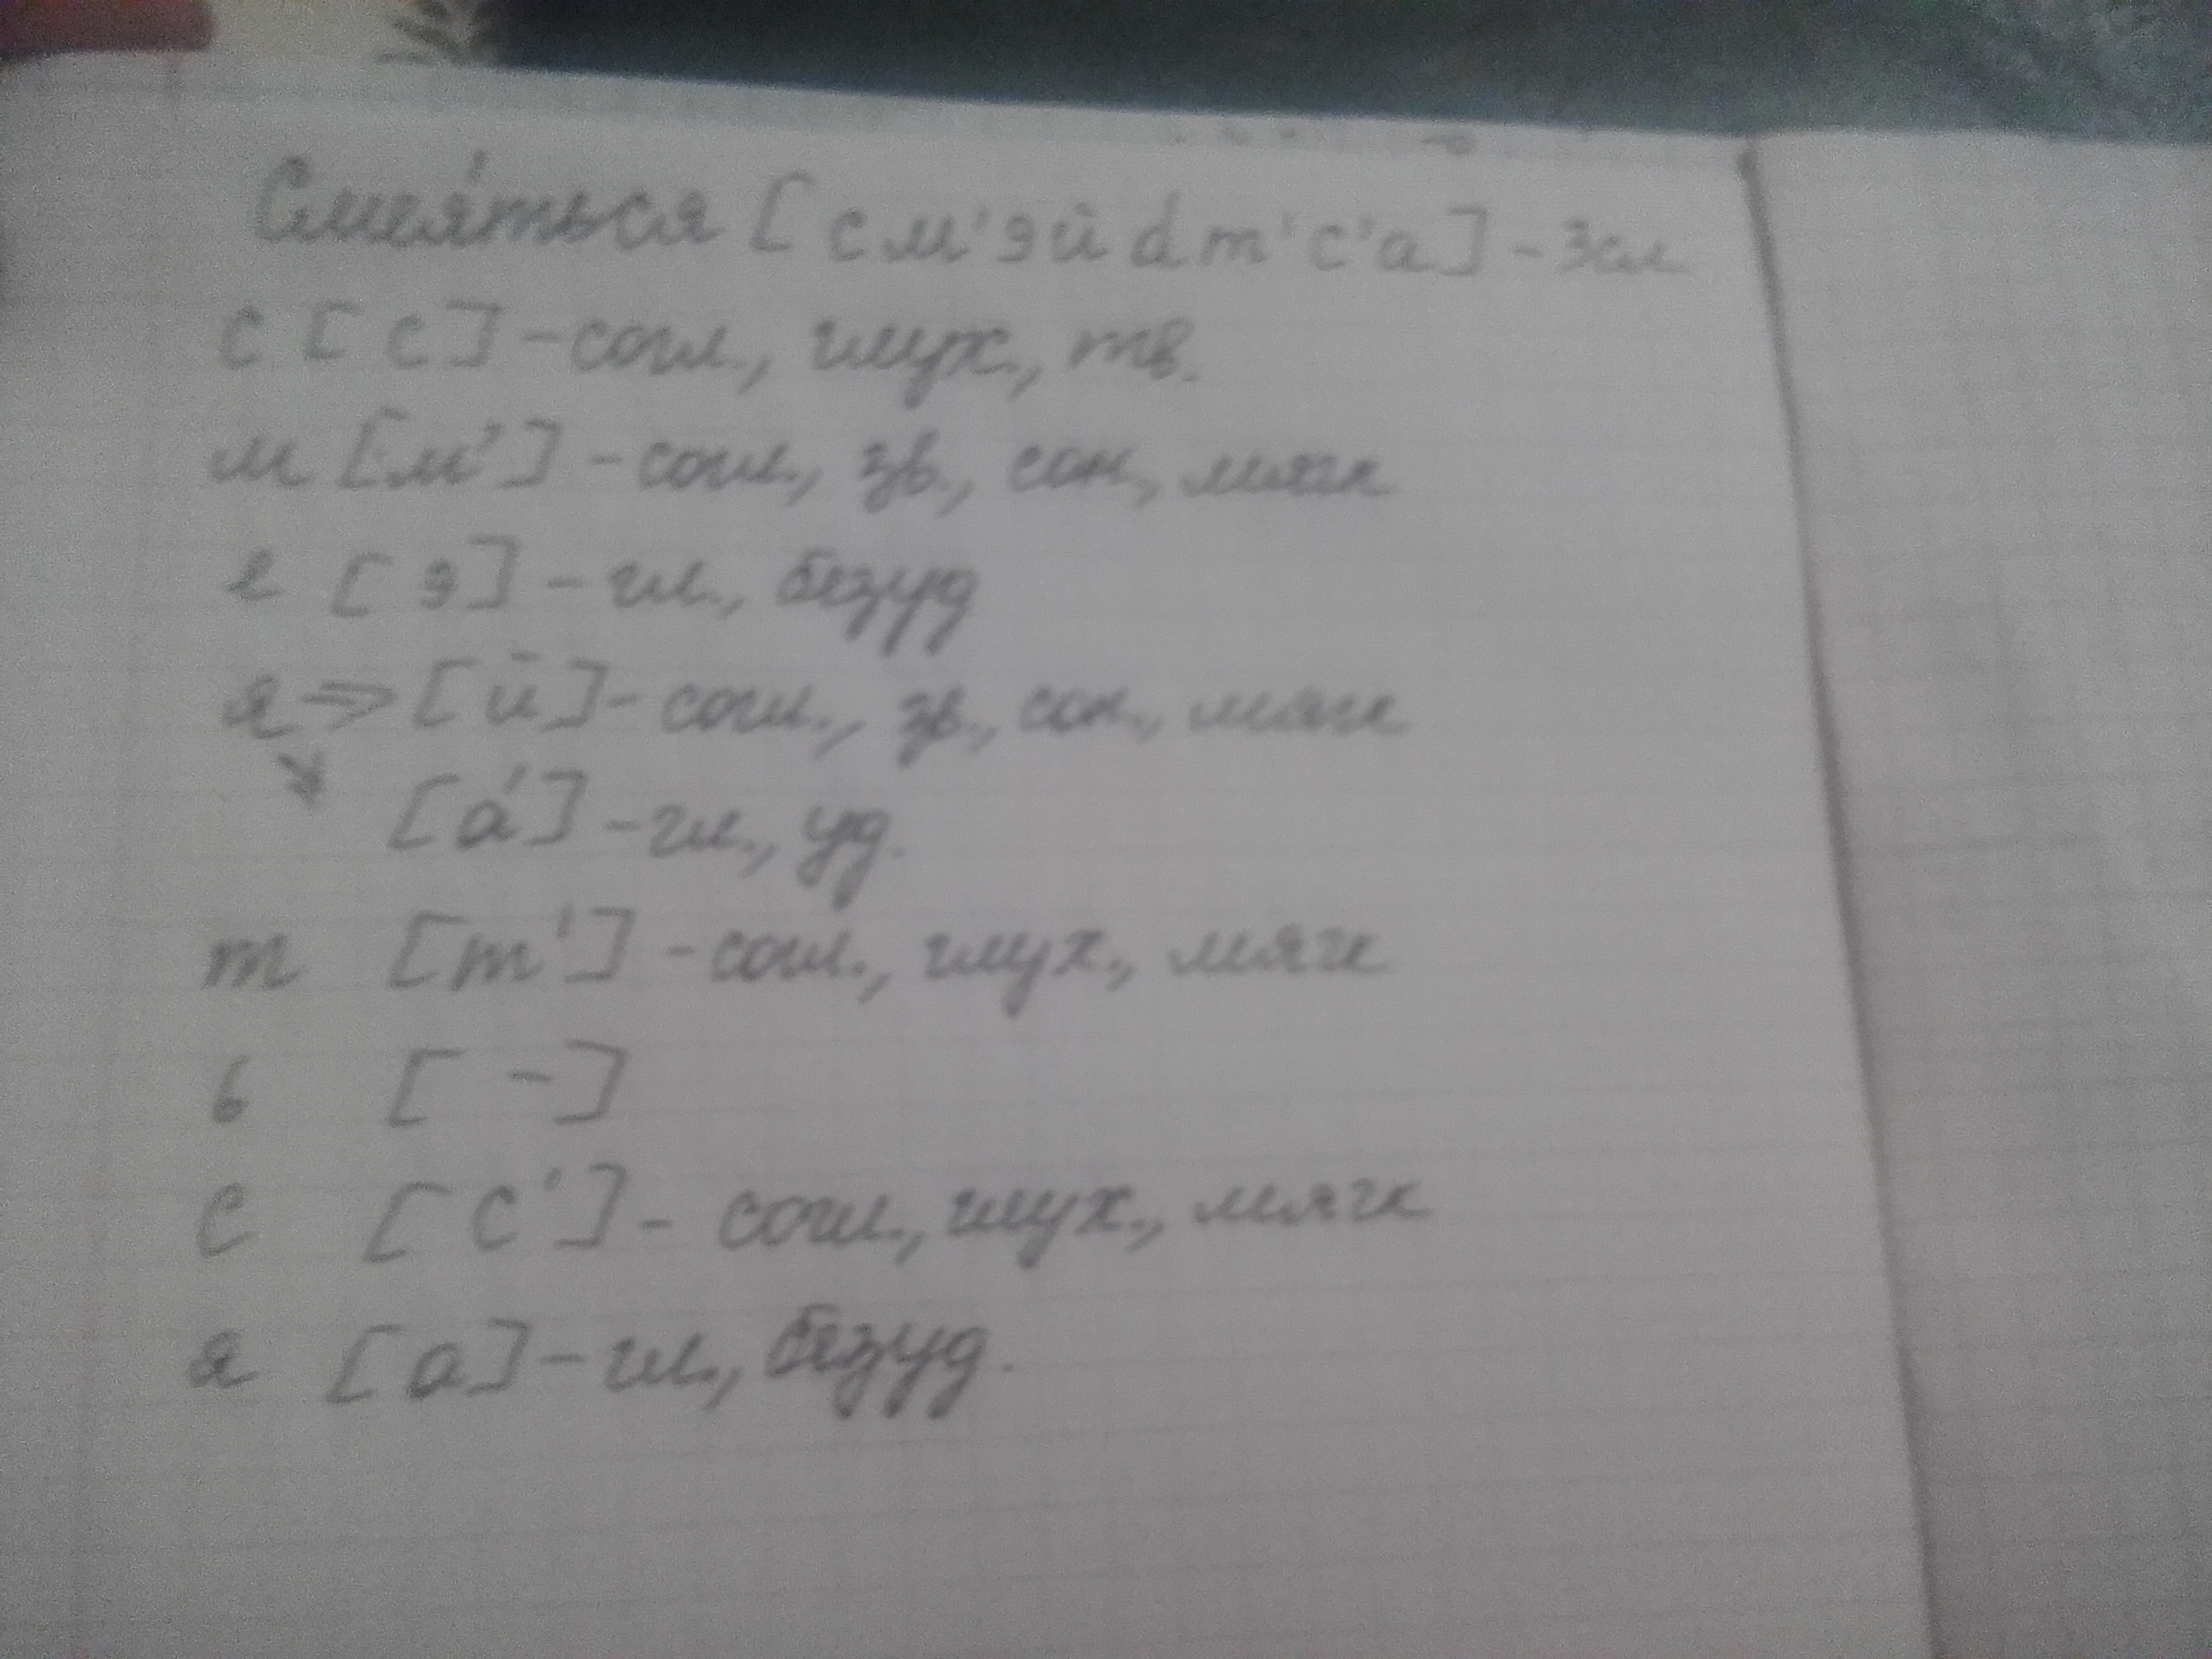 Смея́ться [см'эйа́т'с'а] - 3сл
с [с] - согл., глух., тв.
м [м'] - согл., зв., сон., мягк
е [э] - гл., безуд
я ⇒ [й] - согл., зв., сон., мягк
↘ [а́] - гл., уд.
т [т'] - согл., глух., мягк
ь [-]
с [с'] - согл., глух., мягк
я [а] - гл., безуд.